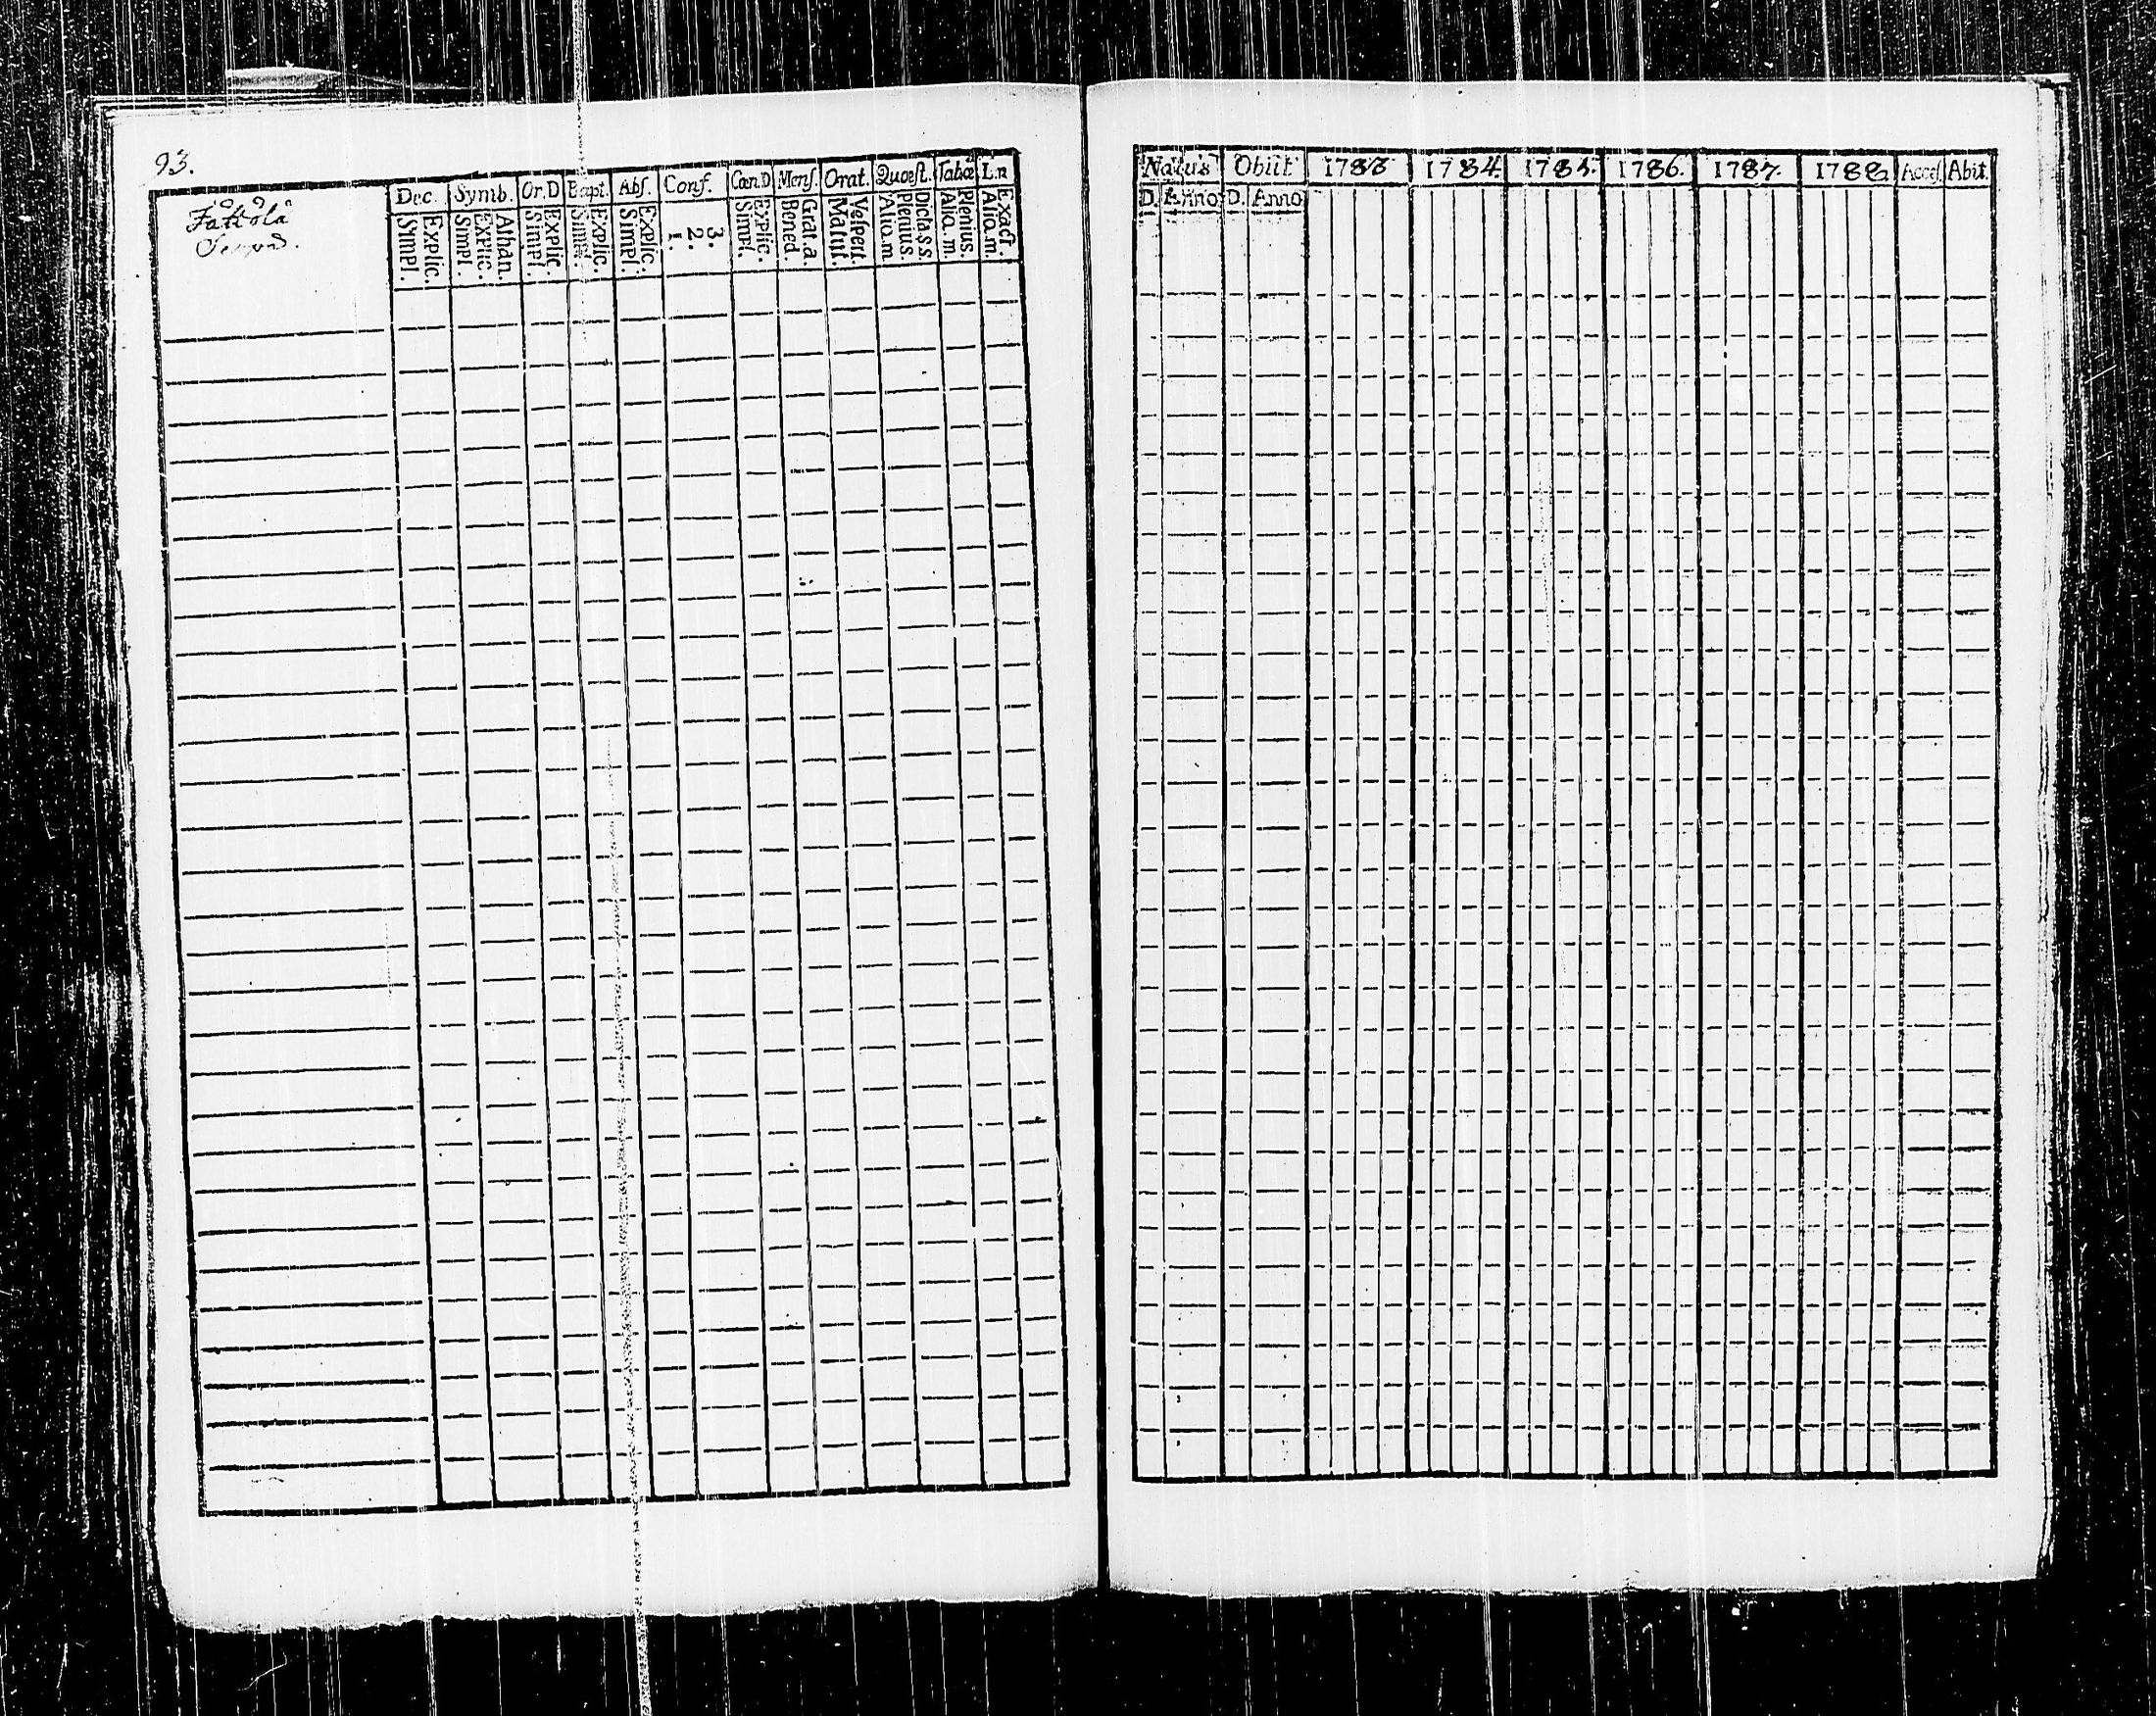 93.
Dec. Symb. Or.D Bapt. Abs. Conf. Cœn.D Mens. Orat. Quœst. Tabœ L.n
Simpl. Explic. Simpl. Explic. Athan. Simpl. Explic. Simpl. Explic. Simpl. Explic. 1. 2. 3. Simpl. Explic. Bened. Grat.a. Matut. Vespert. Alio.m Plenius. Dicta.s.s. Alio.m. Plenius. Alio.m. Exact.
Natus Obiit 1783 1784. 1785. 1786. 1787. 1788. Acces. Abit.
D. Anno D. Anno